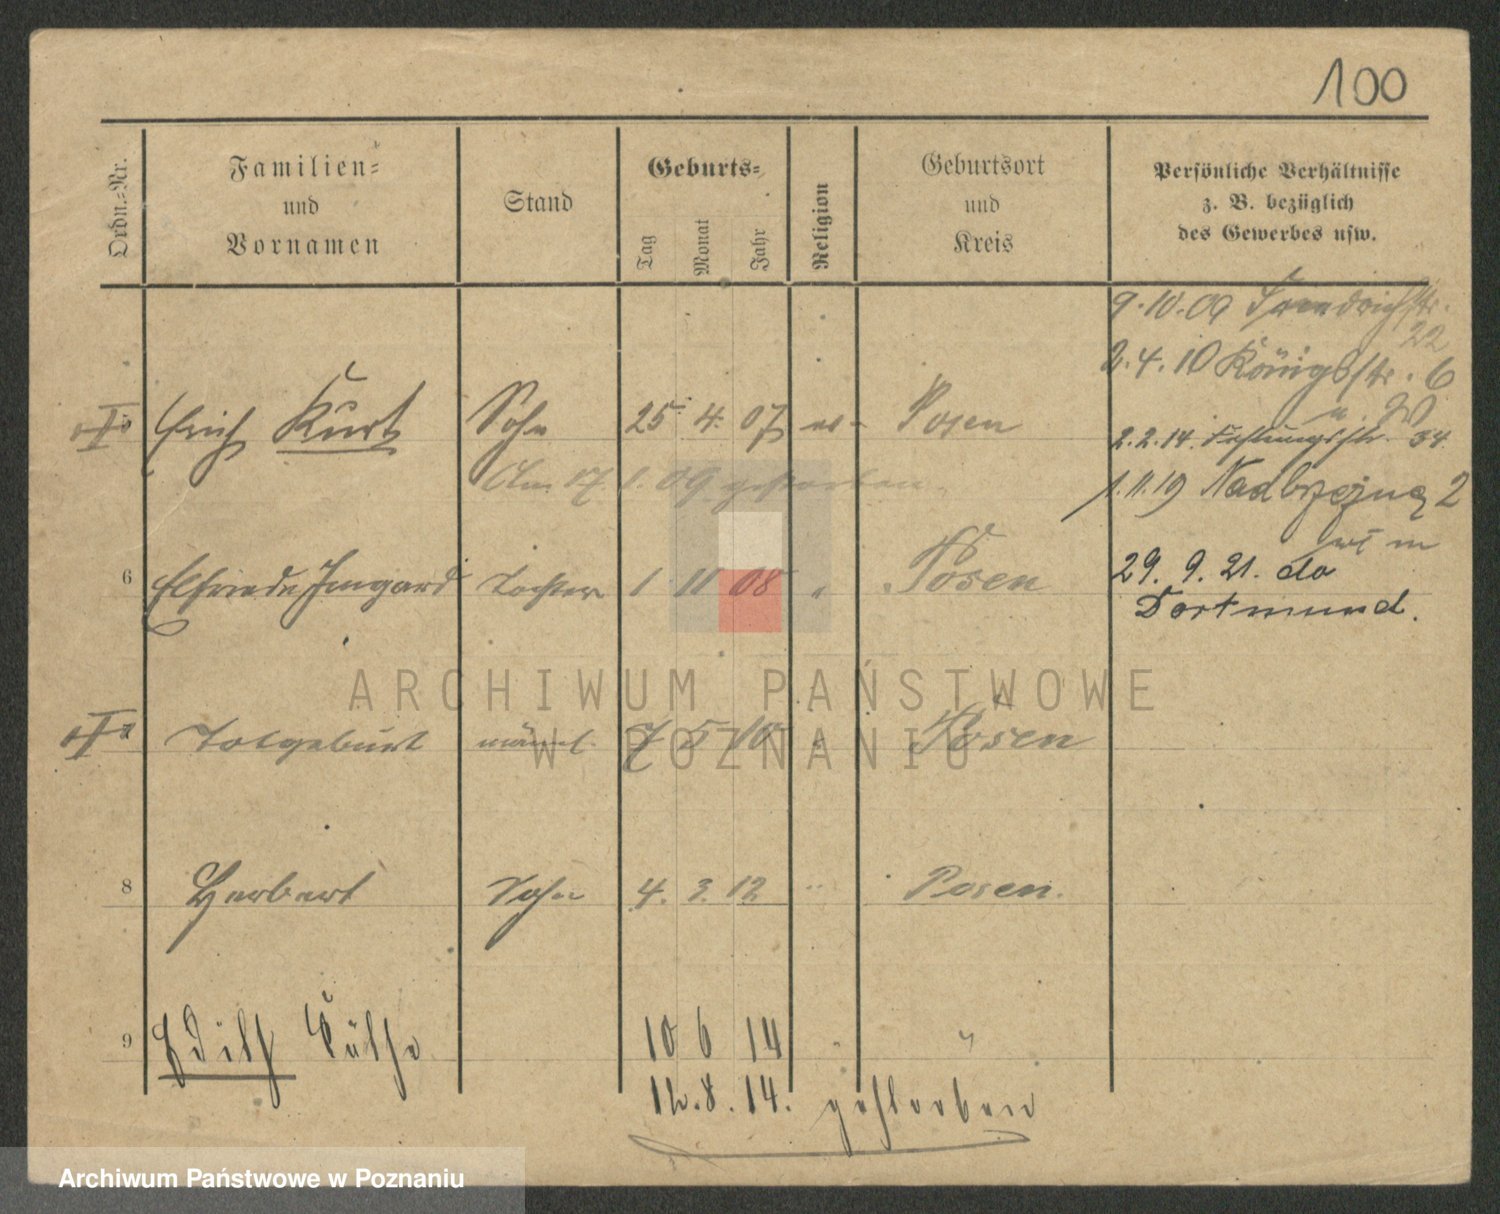 100
Ordn.-Nr.
Familien-
und
Vornamen
Stand
Geburts-
Tag
Monat
Jahr
Religion
Geburtsort
und
Kreis
Persönliche Verhältnisse
z. B. bezüglich
des Gewerbes usw.
9.10.09
22
2.4.10 Königsstr. 6
Erich Kurt Sohn 25 4. 07 Posen
2.2.14. 34.
Am 17. 1. 09 gestorben.
1.11.19 Nadbrzeżna 2
6 Elfriede Irmgard Tochter 1 11 08 " Posen
29. 9. 21. do
Dortmund.
Totgeburt männl. 7 5 10 " Posen
8 Herbert Sohn 4. 3. 12 " Posen.
9 Edith Käthe 10 6 14 " "
12.8.14. gestorben
ARCHIWUM PAŃSTWOWE
W POZNANIU
Archiwum Państwowe w Poznaniu